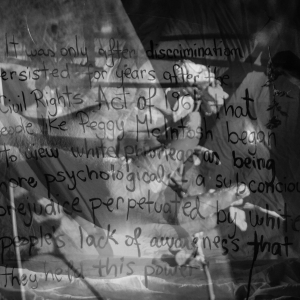 It was only after discrimination
persisted for years after the
Civil Rights Act of 1964 that
people like Peggy McIntosh began
to view white privilege as being
more psychological a subconscious
prejudice perpetuated by white
people's lack of awareness that
they have this power